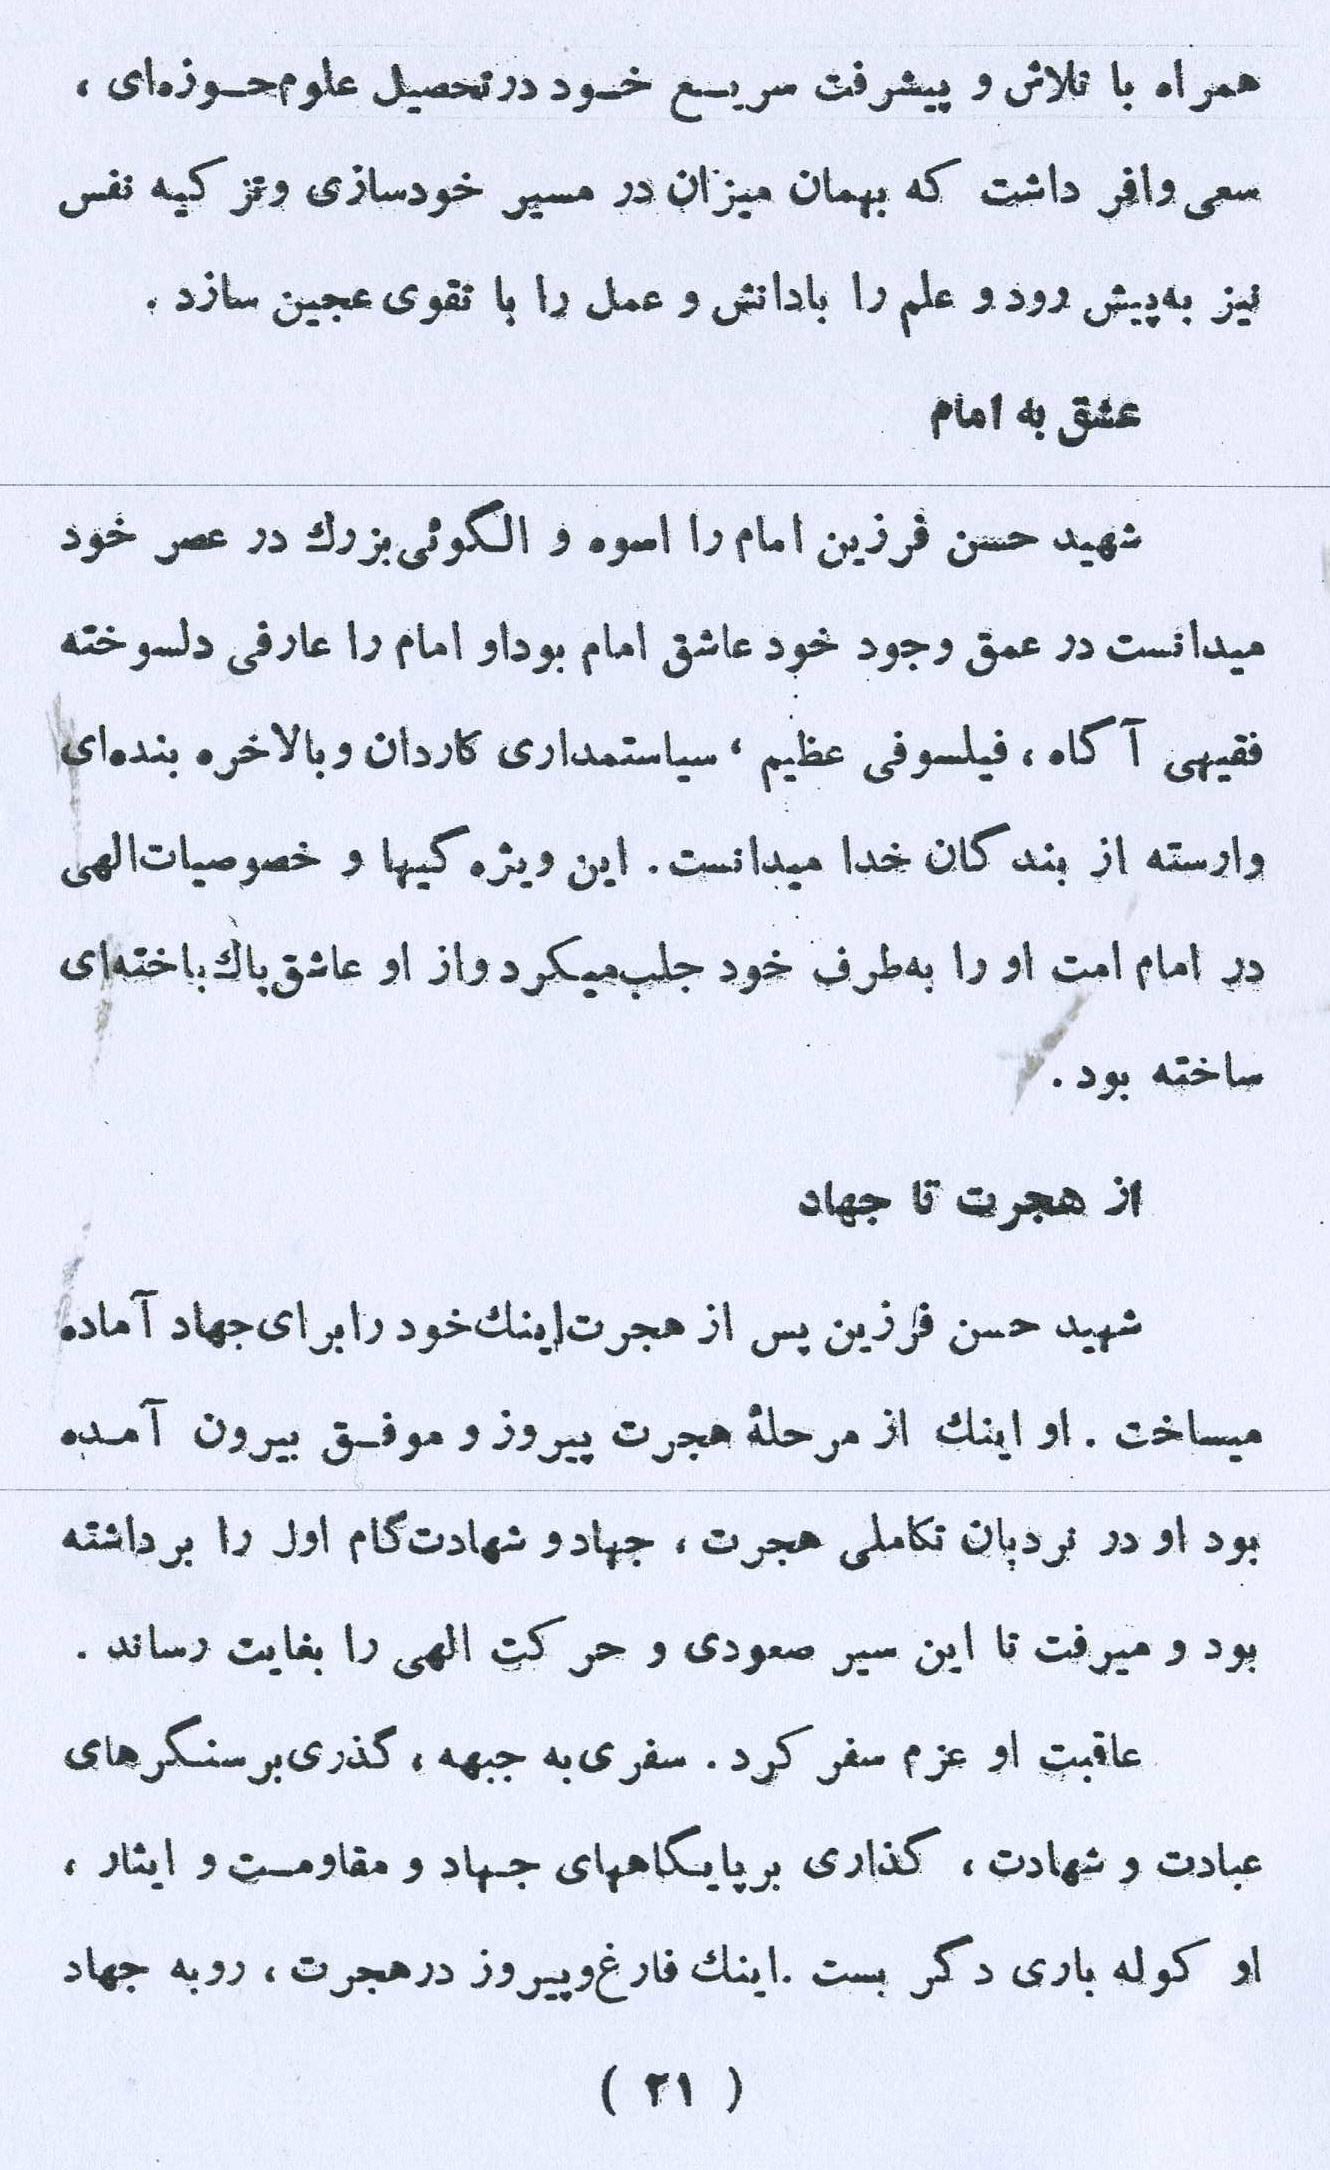 همراه با تلاش و پیشرفت سریع خود در تحصیل علوم حوزه‌ای ،
سعی وافر داشت که بهمان میزان در مسیر خودسازی و تزکیه نفس
نیز به‌پیش رود و علم را بادانش و عمل را با تقوی عجین سازد .
عشق به امام
شهید حسن فرزین امام را اسوه و الگوئی بزرك در عصر خود
میدانست در عمق وجود خود عاشق امام بود او امام را عارفی دلسوخته
فقیهی آگاه ، فیلسوفی عظیم ، سیاستمداری کاردان و بالاخره بنده‌ای
وارسته از بندگان خدا میدانست . این ویژه‌گیها و خصوصیات الهی
در امام امت او را به‌طرف خود جلب میکرد و از او عاشق پاك‌باخته‌ای
ساخته بود .
از هجرت تا جهاد
شهید حسن فرزین پس از هجرت اینك خود را برای جهاد آماده
میساخت . او اینك از مرحلهٔ هجرت پیروز و موفق بیرون آمده
بود او در نردبان تکاملی هجرت ، جهاد و شهادت گام اول را برداشته
بود و میرفت تا این سیر صعودی و حرکت الهی را بغایت رساند .
عاقبت او عزم سفر کرد . سفری به جبهه ، گذری بر سنگرهای
عبادت و شهادت ، گذاری بر پایگاههای جهاد و مقاومت و ایثار ،
او کوله باری دگر بست . اینك فارغ و پیروز در هجرت ، رو به جهاد
( ۲۱ )